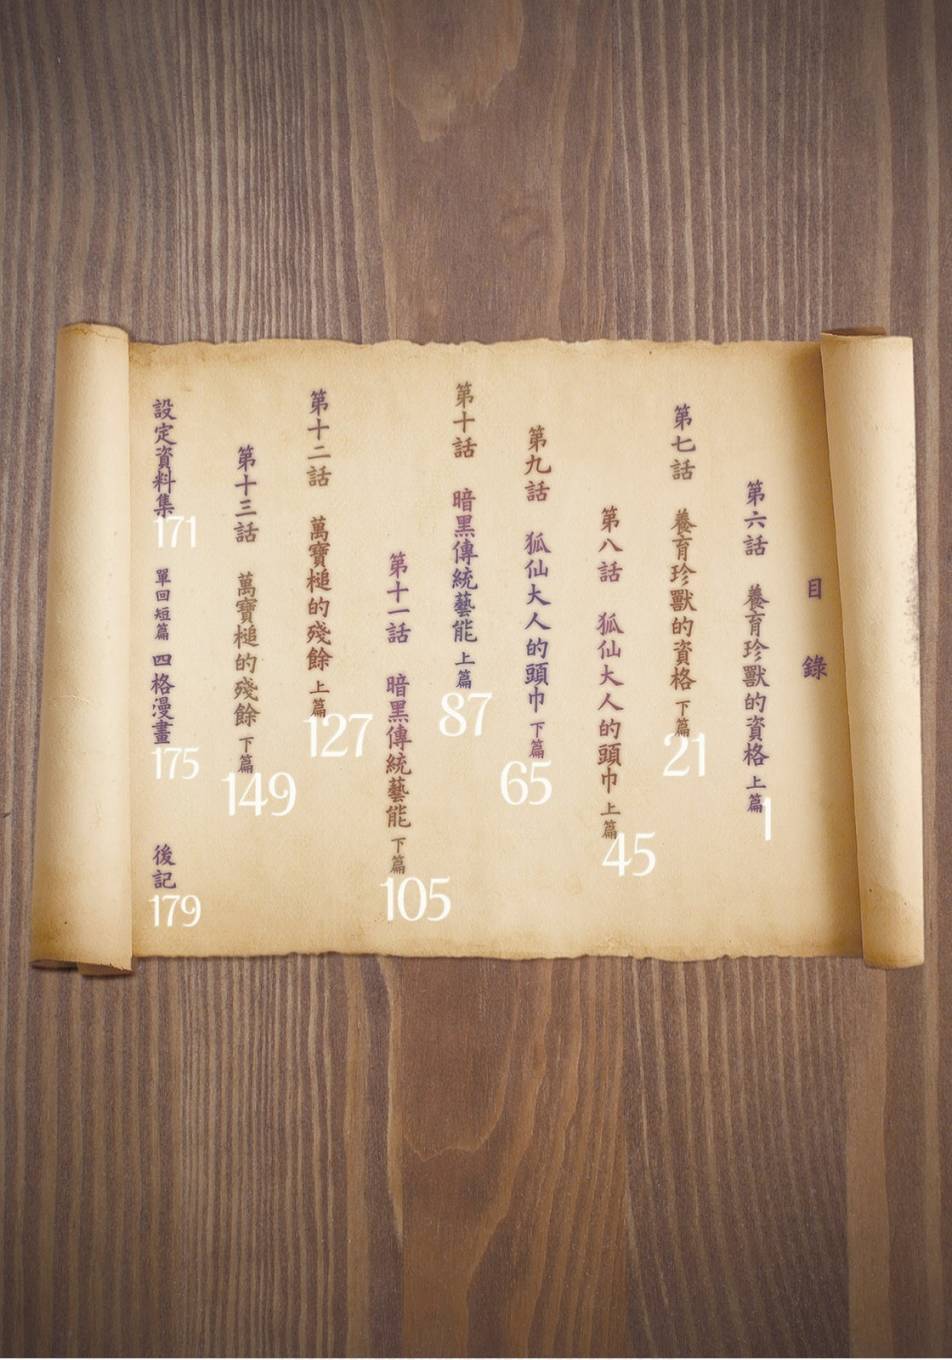 目錄
第六話 養育珍獸的資格 上篇 1
第七話 養育珍獸的資格 下篇 21
第八話 狐仙大人的頭巾 上篇 45
第九話 狐仙大人的頭巾 下篇 65
第十話 暗黑傳統藝能 上篇 87
第十一話 暗黑傳統藝能 下篇 105
第十二話 萬寶槌的殘餘 上篇 127
第十三話 萬寶槌的殘餘 下篇 149
設定資料集 171 單回短篇 四格漫畫 175 後記 179